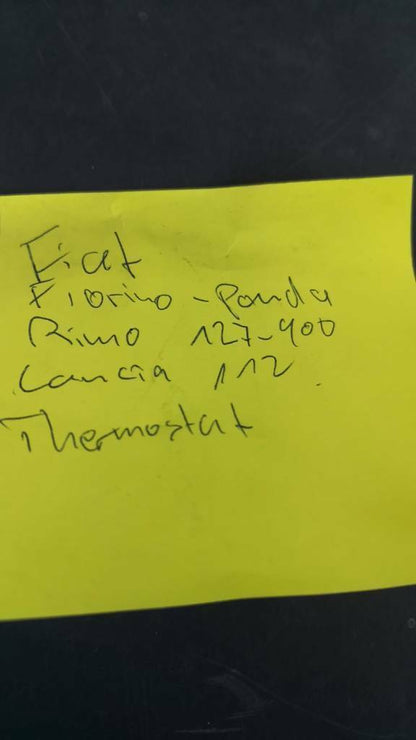 Fiat
Fiorino - Panda
Rimo 127-900
Lancia 112
Thermostat